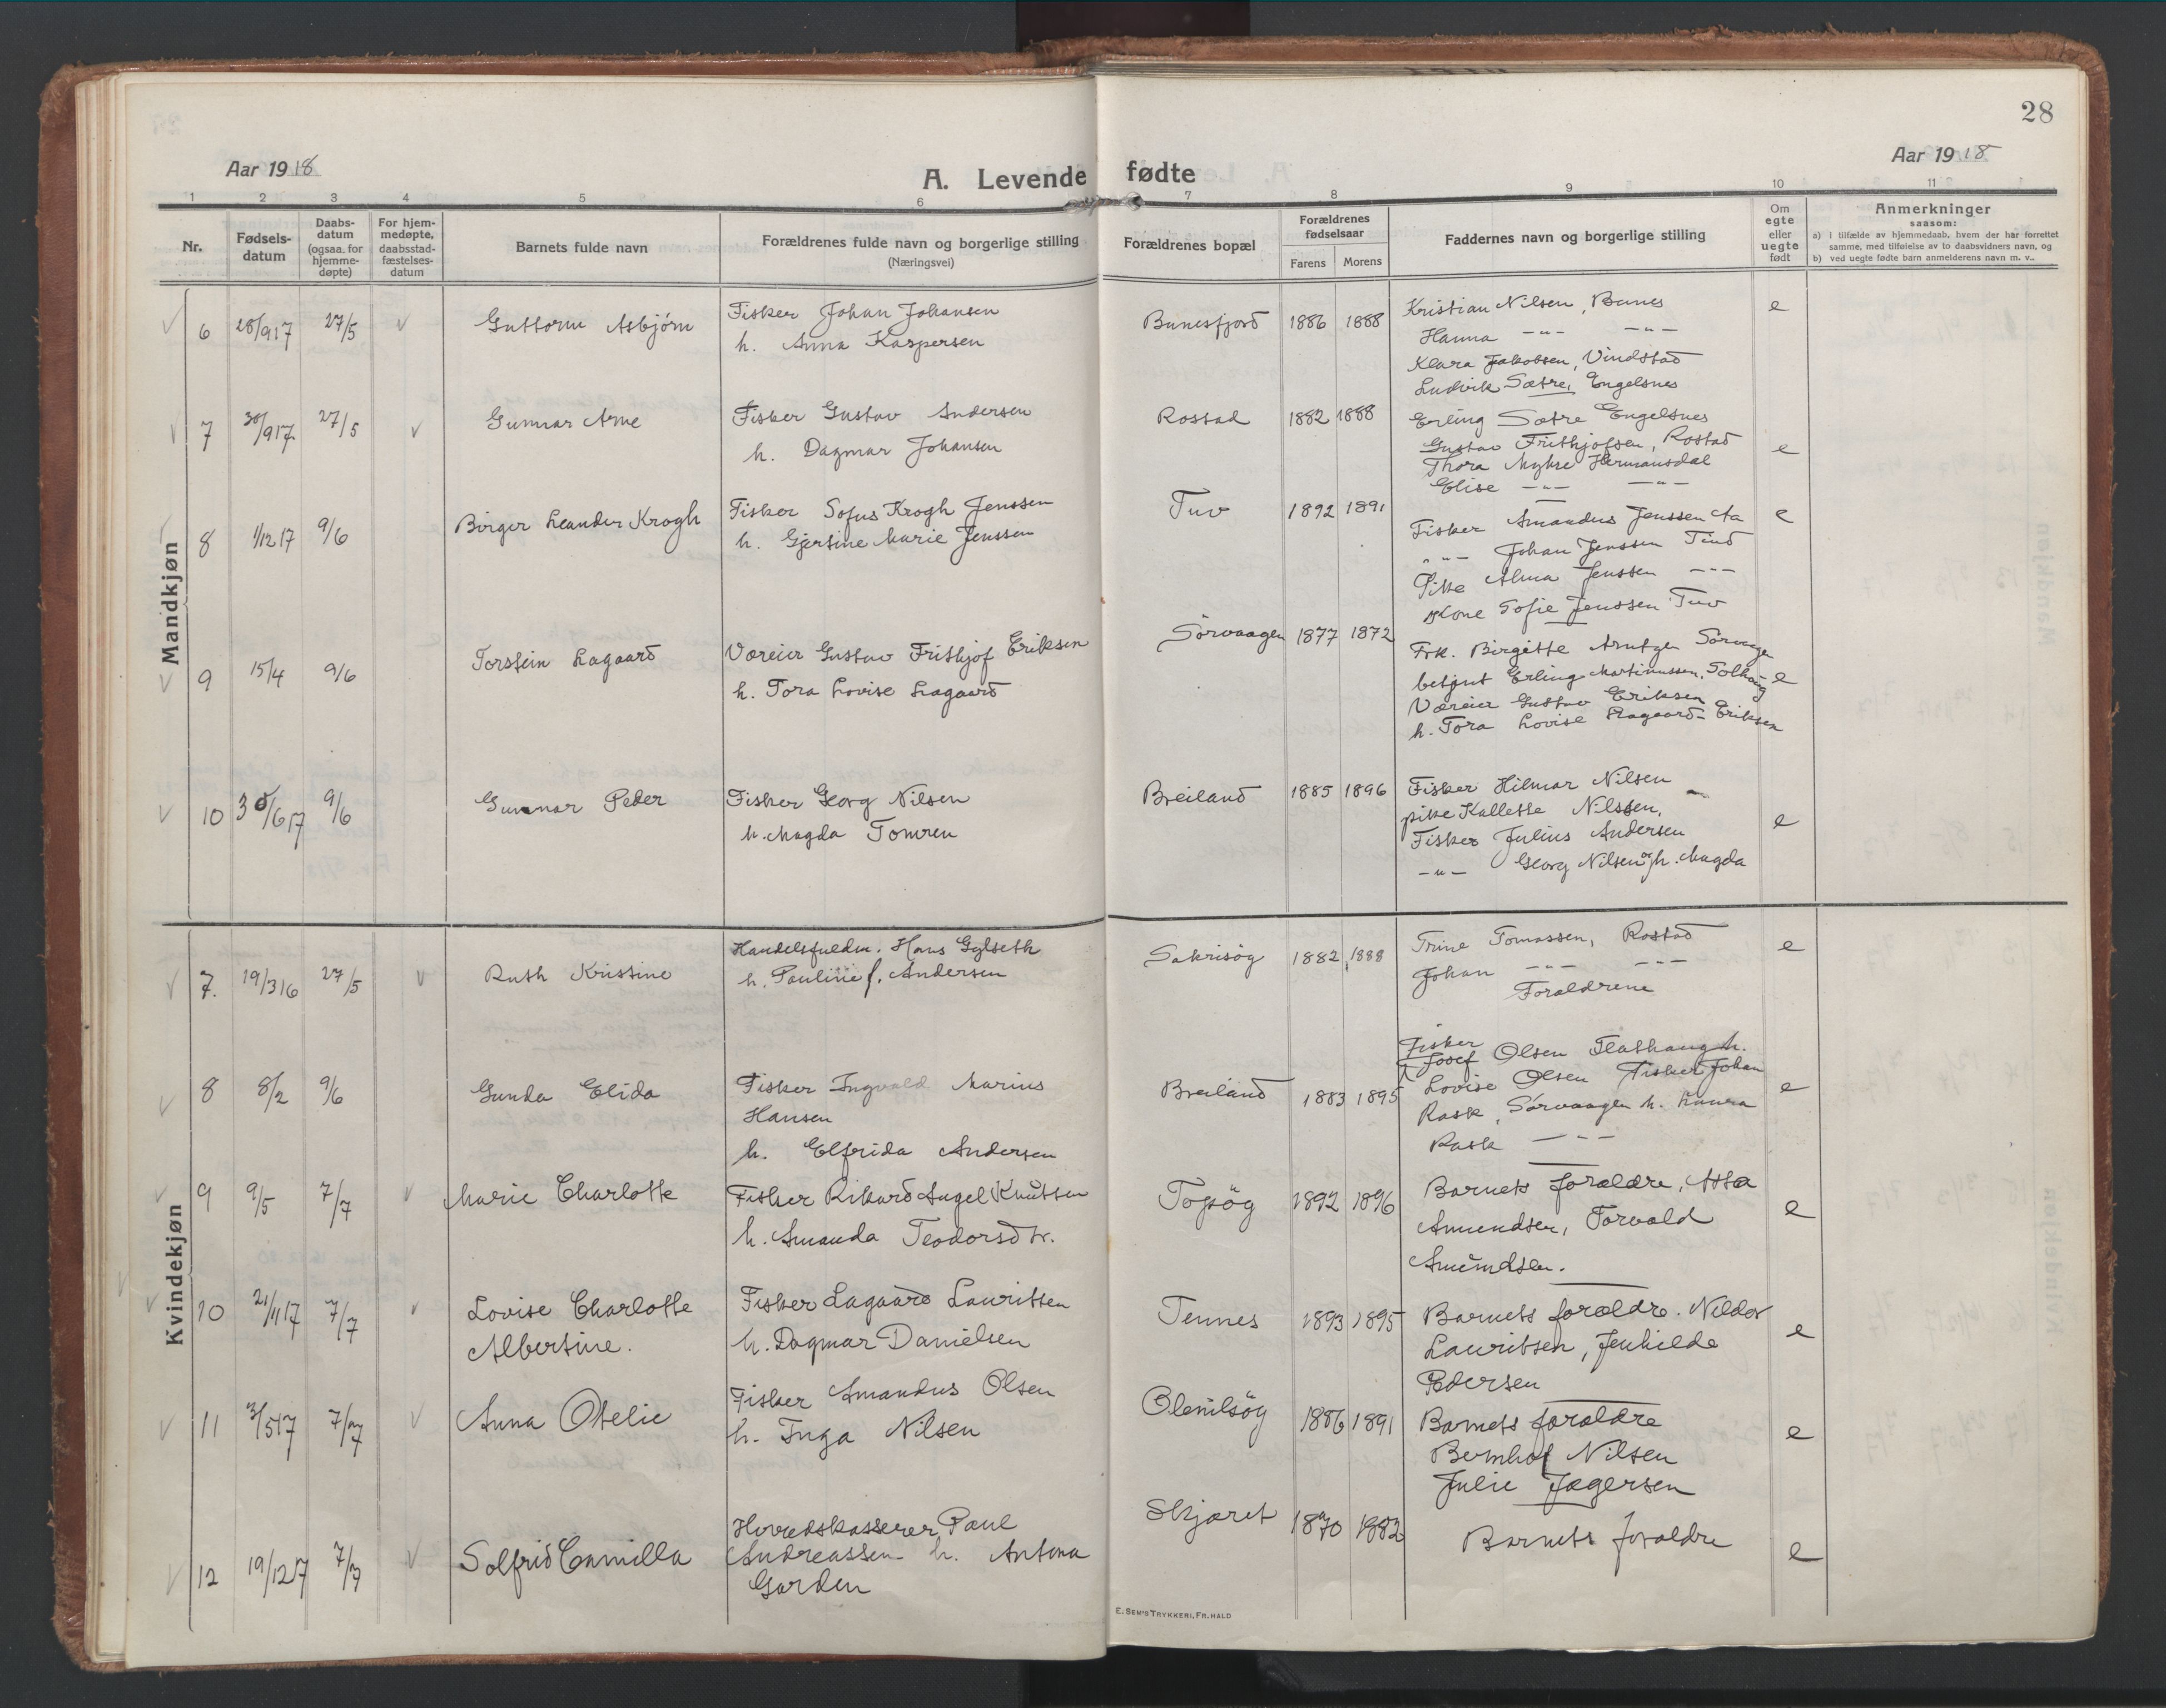 28
Aar 1918
A. Levende fødte
Aar 1918
1 2 3 4 5 6 7 8 9 10 11
Nr.
Fødsels-
datum
Daabs-
datum
(ogsaa. for
hjemme-
døpte)
For hjem-
medøpte,
daabsstad-
fæstelses-
datum
Barnets fulde navn
Forældrenes fulde navn og borgerlige stilling
(Næringsvei)
Forældrenes bopæl
Forældrenes
fødselsaar
Farens Morens
Faddernes navn og borgerlige stilling
Om
egte
eller
uegte
født
Anmerkninger
saasom:
a) I tilfælde av hjemmedaab, hvem der har forrettet
samme, med tilføielse av to daabsvidners navn, og
b) ved uegte fødte barn anmelderens navn m. v..
Mandkjøn
6 28/917 27/5 Guttorm Asbjørn
Fisker Johan Johansen
h. Anna Kaspersen
Bunesfjord 1886 1888
Kristian Nilsen, Bunes
Hanna -"- -"-
Klara Jakobsen, Vindstad
Ludvik Sætre, Engelsnes
e
7 30/917 27/5 Gunnar Arne
Fisker Gustav Andersen
h. Dagmar Johansen
Rostad 1882 1888
Erling Sætre Engelsnes
Gustav Frithjofsen, Rostad
Thora Myhre Hermansdal
Elise -"- -"-
e
8 1/1217 9/6 Birger Leander Krogh
Fisker Sofus Krogh Jenssen
h. Gjertine Marie Jenssen
Tuv 1892 1891
Fisker Amandus Jenssen Aa
-"- Johan Jenssen Tind
Pike Alma Jenssen -"-
Kone Sofie Jenssen Tuv
e
9 15/4 9/6 Torstein Lagaard
Væreier Gustav Frithjof Eriksen
h. Tora Lovise Lagaard
Sörvaagen 1877 1872
Frk. Birgitte Arntzen Sørvagen
betjent Erling Martinussen, Solhaug
Væreier Gustav Eriksen
h. Tora Lovise Lagaard-Eriksen
e
10 30/617 9/6 Gunnar Peder
Fisker Georg Nilsen
h. Magda Tomren
Breiland 1885 1896
Fisker Hilmar Nilsen
pike Kallette Nilssen,
Fisker Julius Andersen
-"- Georg Nilsen og h. Magda
e
Kvindekjøn
7. 19/316 27/5 Ruth Kristine
Handelsfuldm. Hans Gylseth
h. Pauline f. Andersen
Sakrisög 1882 1888
Trine Tomassen, Rostad
Johan -"- -"-
Forældrene
e
8 8/2 9/6 Gunda Elida
Fisker Ingvald Marius
Hansen
h. Elfrida Andersen
Breiland 1883 1895
Fisker
Josef Olsen Flathaug h.
Lovise Olsen Fisker Johan
Rask, Sörvaagen h. Laura
Rask -"-
e
9 9/5 7/7 Marie Charlotte
Fisker Rikard Angel Knutsen
h. Amanda Teodorsdtr.
Topsög 1892 1896
Barnets forældre, Asta
Amundsen, Torvald
Amundsen.
e
10 21/1117 7/7 Lovise Charlotte
Albertine.
Fisker Lagaard Lauritsen
h. Dagmar Danielsen
Tennes 1893 1895
Barnets forældre. Neldor
Lauritsen, Jenhilde
Pedersen
e
11 3/517 7/7 Anna Otelie
Fisker Amandus Olsen
h. Inga Nilsen
Olenilsög 1886 1891
Barnets forældre
Bernhof Nilsen
Julie Jægersen
e
12 19/1217 7/7 Solfrid Camilla
Herredskasserer Paul
Andreassen h. Antona
Garden
Skjæret 1870 1882
Barnets forældre
e
E. SEM'S TRYKKERI, FR.HALD